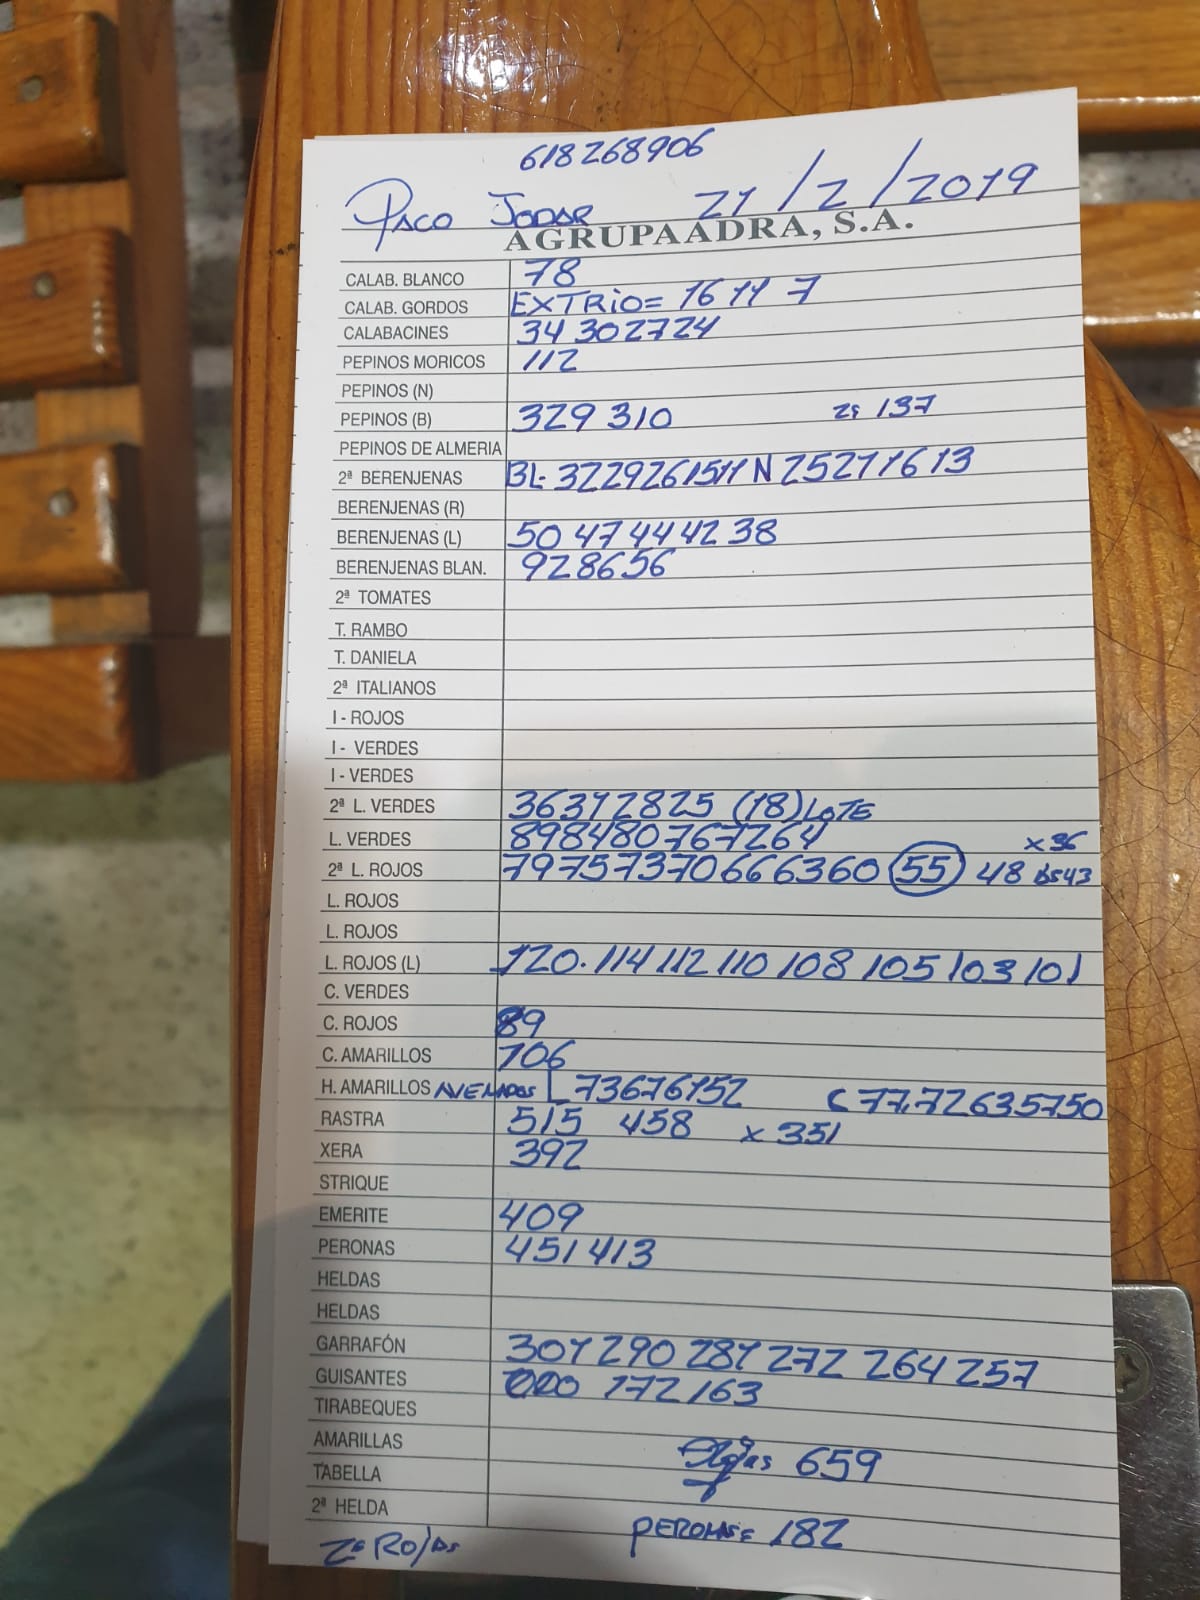 618268906
Paco Jodar 21/2/2019
AGRUPAADRA, S.A.
CALAB. BLANCO 78
CALAB. GORDOS EXTRIO= 16 11 7
CALABACINES 34 30 27 24
PEPINOS MORICOS 112
PEPINOS (N)
PEPINOS (B) 329 310 2ª 137
PEPINOS DE ALMERIA
2ª BERENJENAS BL- 32 29 26 15 11 N 25 21 16 13
BERENJENAS (R)
BERENJENAS (L) 50 47 44 42 38
BERENJENAS BLAN. 92 86 56
2ª TOMATES
T. RAMBO
T. DANIELA
2ª ITALIANOS
I - ROJOS
I - VERDES
I - VERDES
2ª L. VERDES 36 31 28 25 (18) LOTE
L. VERDES 89 84 80 76 72 64 x 36
2ª L. ROJOS 79 75 73 70 66 63 60 (55) 48 43
L. ROJOS
L. ROJOS
L. ROJOS (L) 120. 114 112 110 108 105 103 101
C. VERDES
C. ROJOS 89
C. AMARILLOS 106
H. AMARILLOS L 73 67 61 52 C 77,72 63 57 50
RASTRA 515 458 x 351
XERA 392
STRIQUE
EMERITE 409
PERONAS 451 413
HELDAS
HELDAS
GARRAFÓN 301 290 281 272 264 257
GUISANTES 172 163
TIRABEQUES
AMARILLAS 659
TABELLA
2ª HELDA PERONAS= 182
2ª Rojas